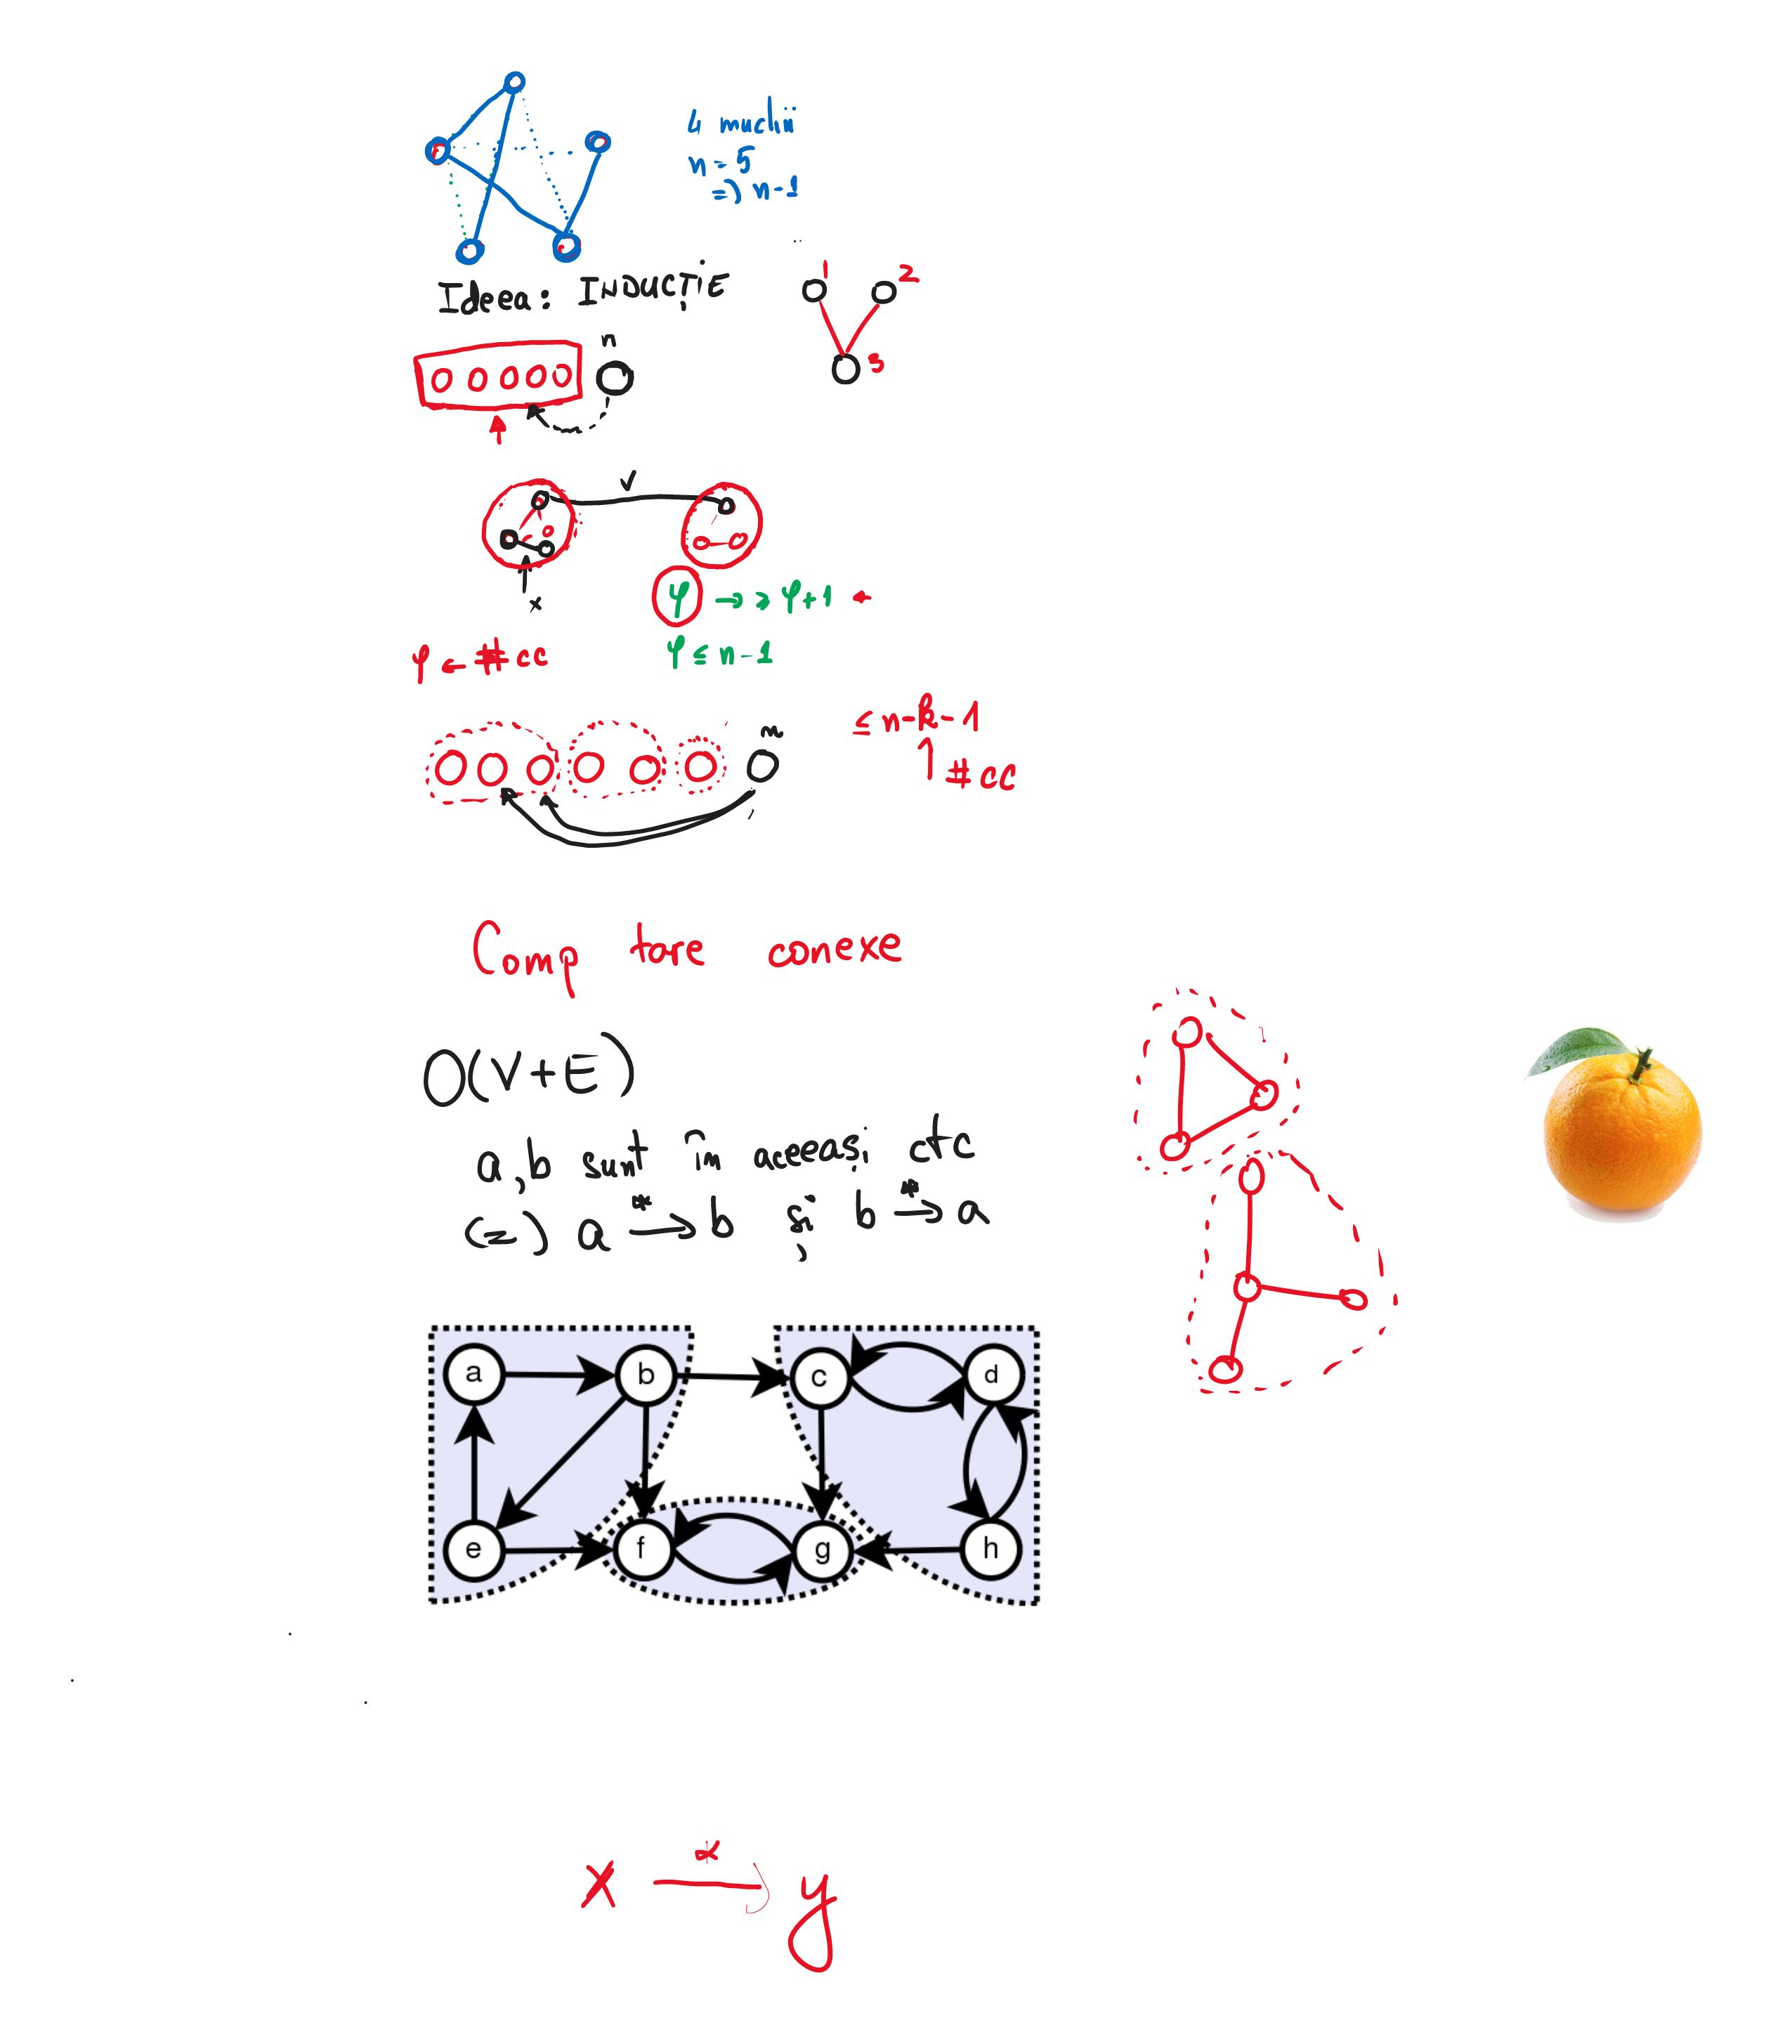 4 muchii
n = 5
=> n-1
Ideea: INDUCȚIE
1 2
3
n
✓
x
φ → ≥ φ+1 ←
φ ← #cc
φ ≤ n-1
≤ n-k-1
n
↑ #cc
Comp tare conexe
O(V+E)
a,b sunt în aceeași ctc
(=) a →* b și b →* a
a b c d
e f g h
x →* y